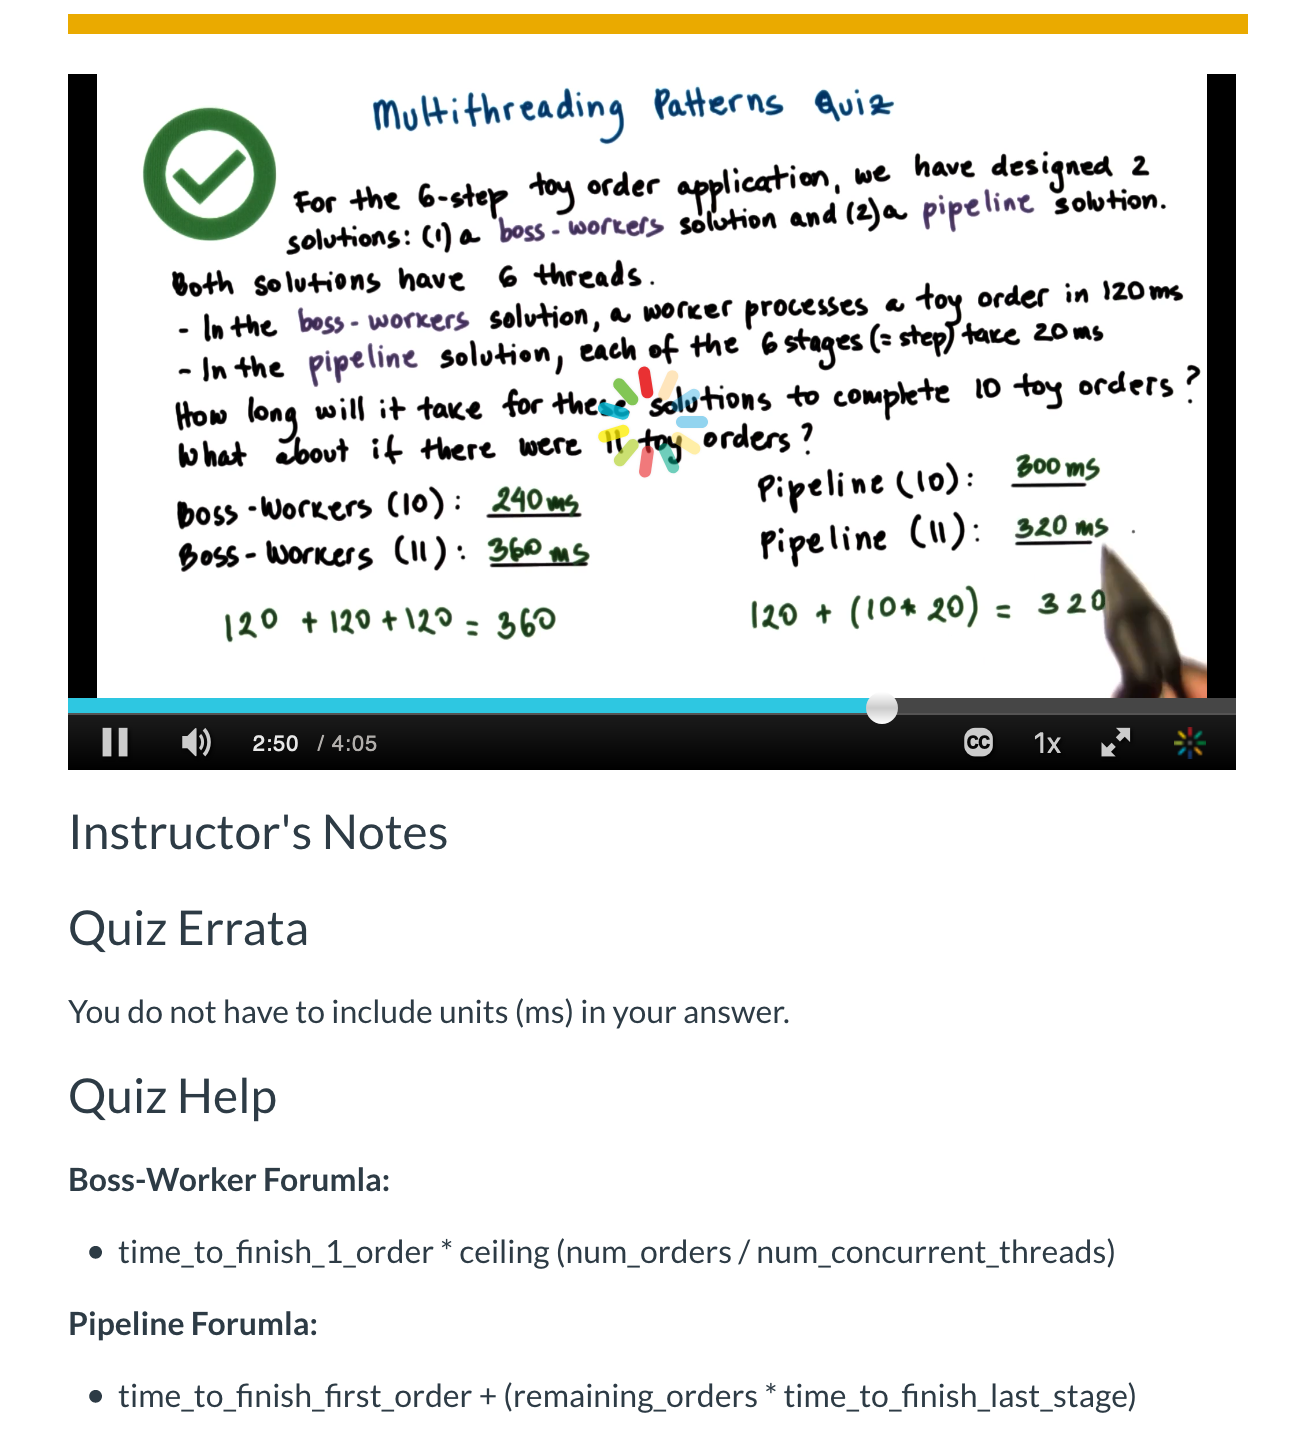 Multithreading Patterns Quiz
For the 6-step toy order application, we have designed 2
solutions: (1) a boss-workers solution and (2) a pipeline solution.
Both solutions have 6 threads.
- In the boss-workers solution, a worker processes a toy order in 120ms
- In the pipeline solution, each of the 6 stages (= step) take 20ms
How long will it take for these solutions to complete 10 toy orders?
What about if there were 11 toy orders?
Boss-Workers (10): 240ms
Boss-Workers (11): 360ms
120 + 120 + 120 = 360
Pipeline (10): 300ms
Pipeline (11): 320ms
120 + (10* 20) = 320
2:50 / 4:05
CC
1x
Instructor's Notes
Quiz Errata
You do not have to include units (ms) in your answer.
Quiz Help
Boss-Worker Forumla:
• time_to_finish_1_order * ceiling (num_orders / num_concurrent_threads)
Pipeline Forumla:
• time_to_finish_first_order + (remaining_orders * time_to_finish_last_stage)